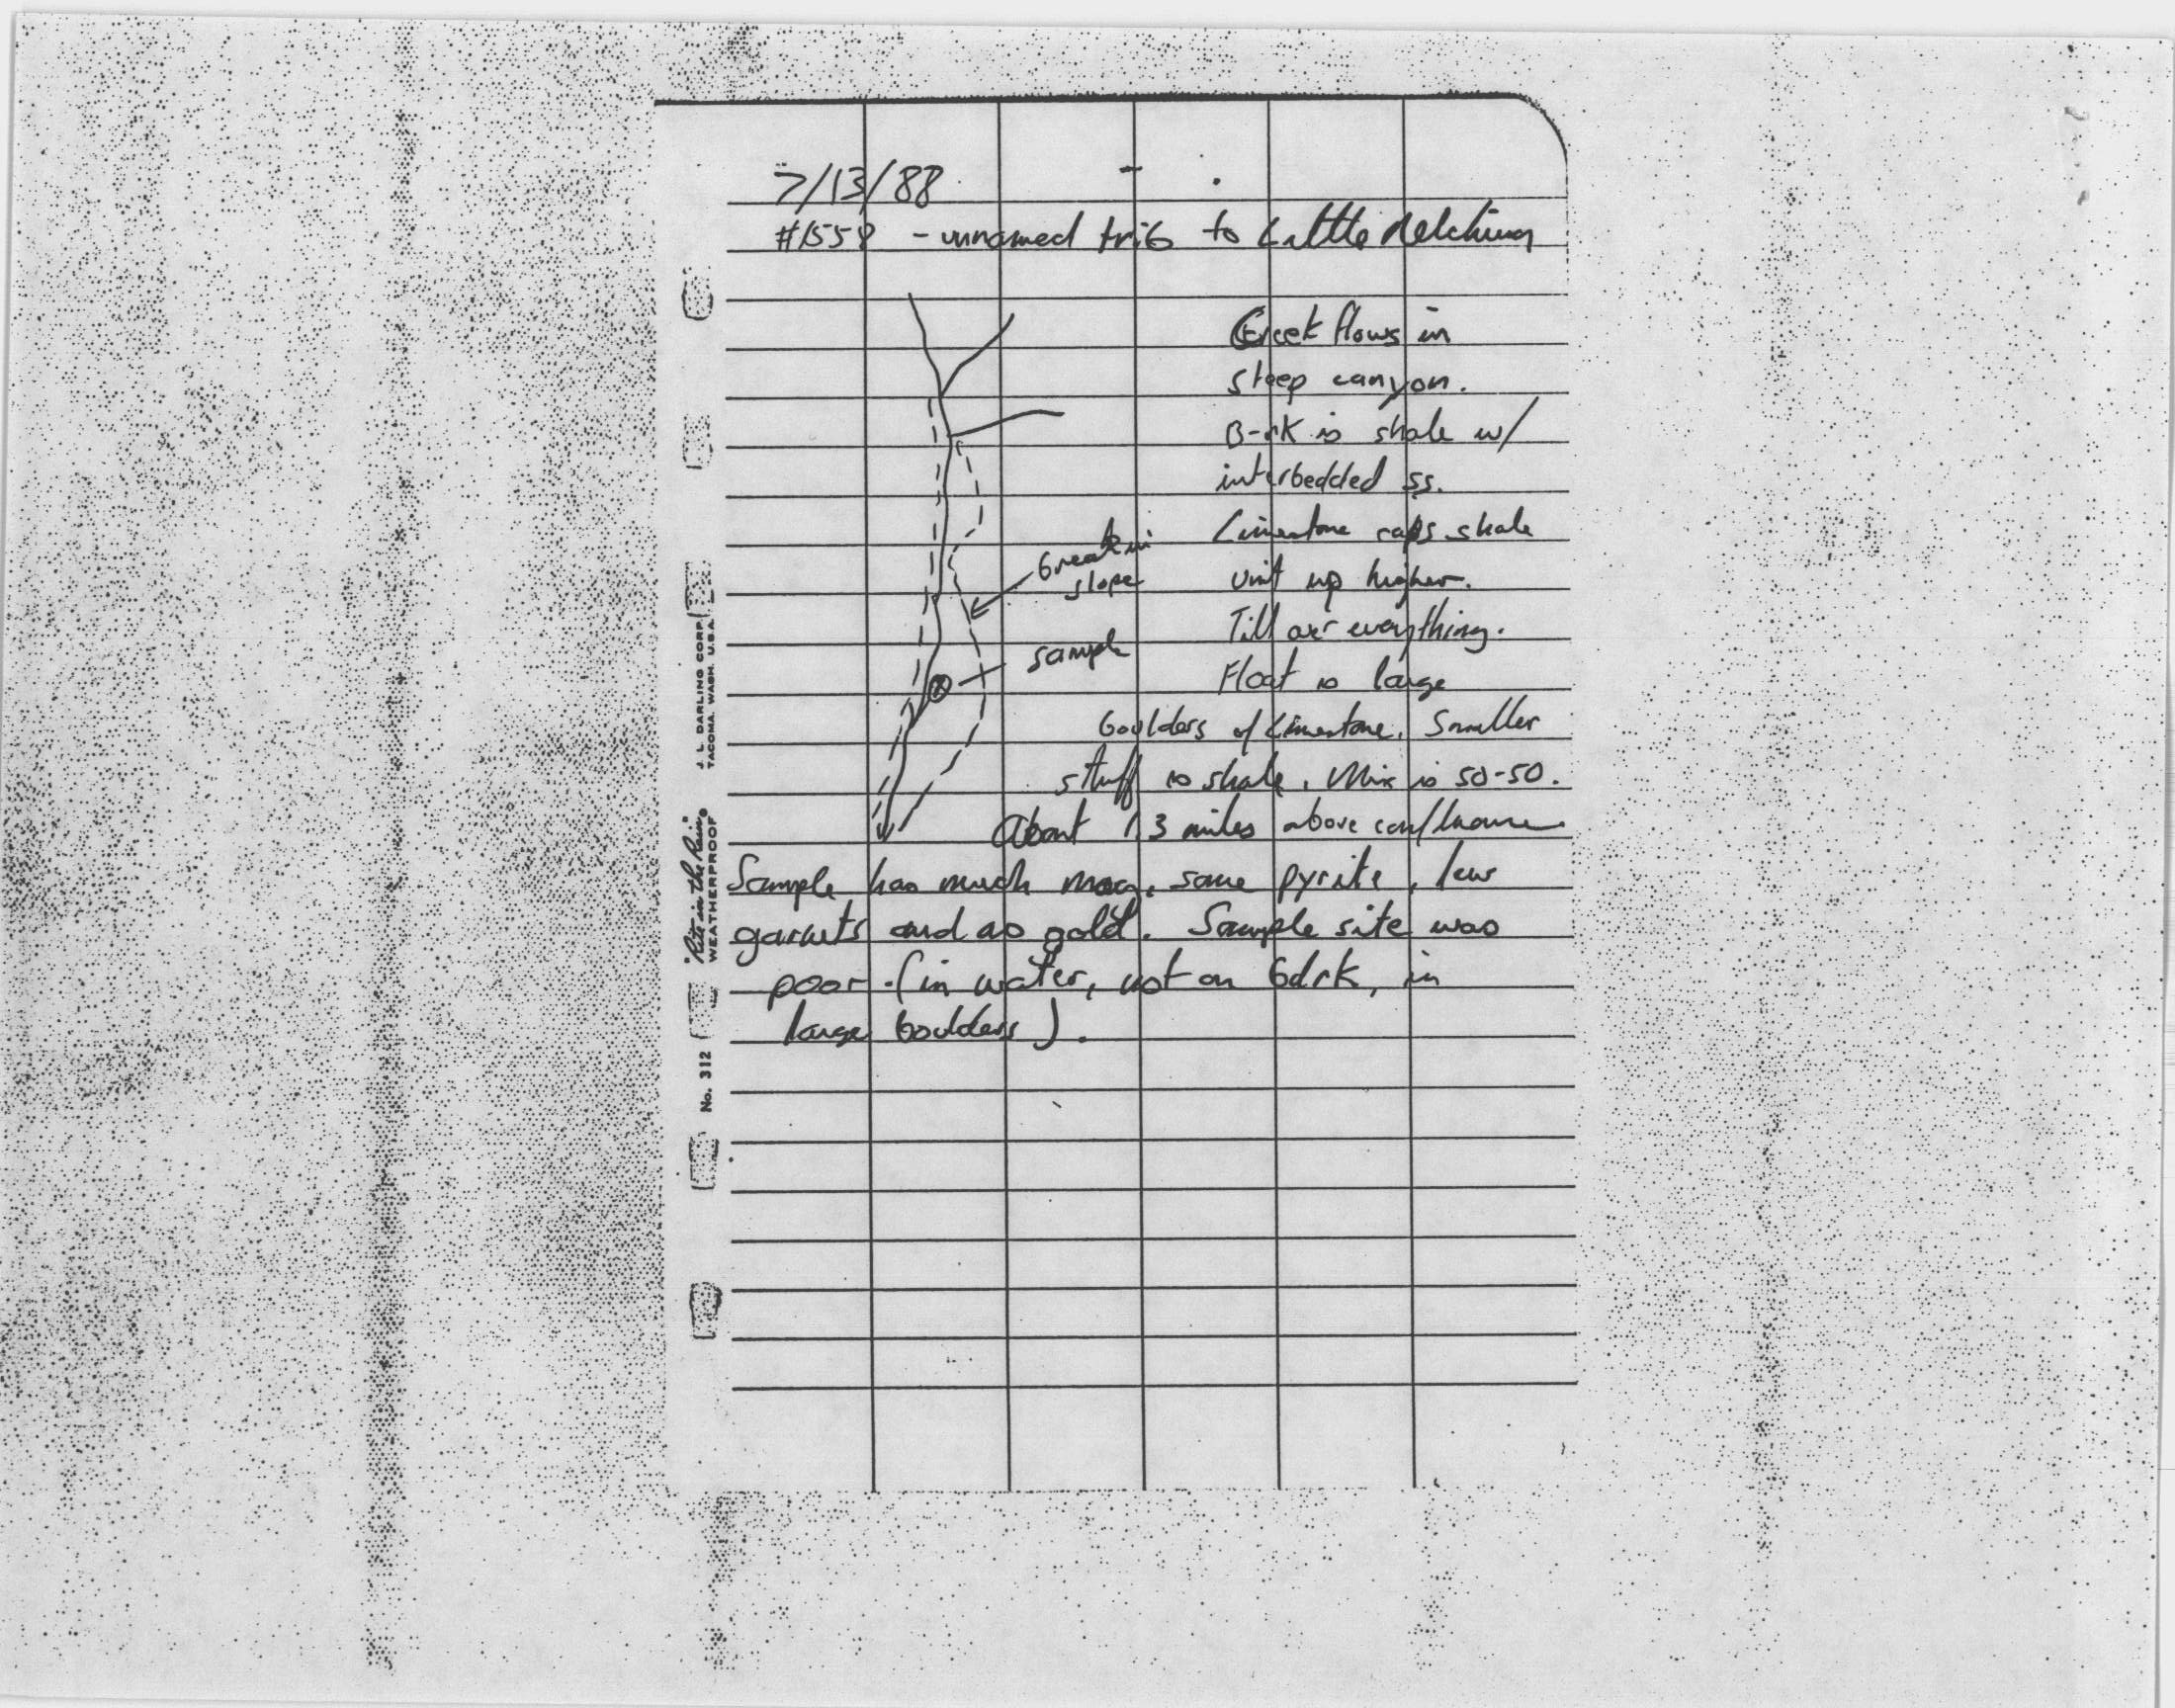 7/13/88
#1558 - unnamed trib to Little Nelchina
Creek flows in
steep canyon.
B-rk is shale w/
interbedded ss.
Limestone caps shale
unit up higher.
Till over everything.
Float is large
boulders of limestone. Smaller
stuff is shale. Mix is 50-50.
About 1.3 miles above confluence
break in
slope
sample
Sample has much mag, some pyrite, few
garnets and no gold. Sample site was
poor (in water, not on bdrk, in
large boulders).
J. L. DARLING CORP.
TACOMA, WASH. U.S.A.
"Rite in the Rain"
WEATHERPROOF
No. 312